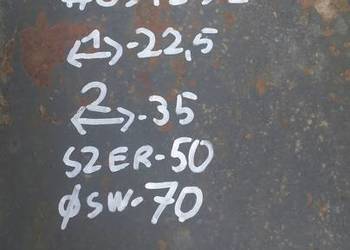 1 ↔ -22,5
2 ↔ -35
SZER-50
ØSW-70